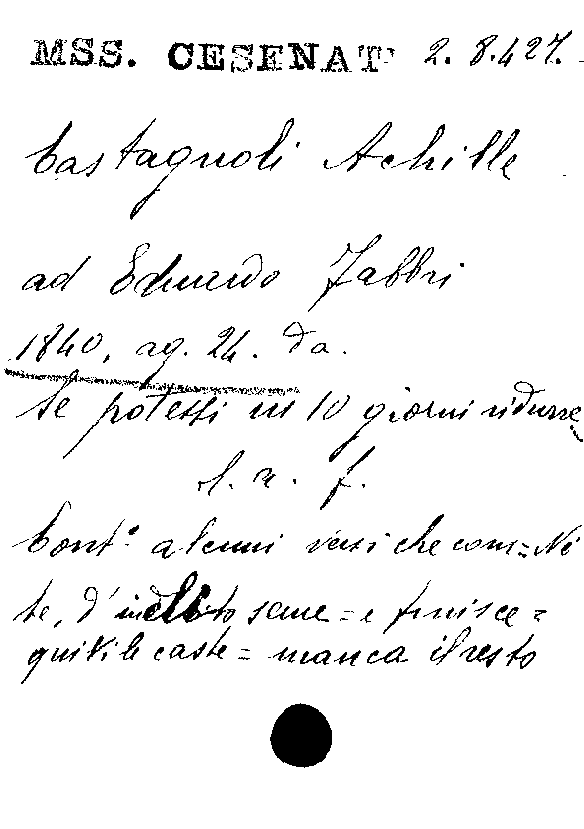 MSS. CESENAT 2. 8.427.
Castagnoli Achille
ad Eduardo Fabbri
1840, ag. 24. da.
Se potessi in 10 giorni ridurre
l. a. f.
Cont.° alcuni versi che com:= Ni
te, d' seme = e finisce =
caste = manca il resto